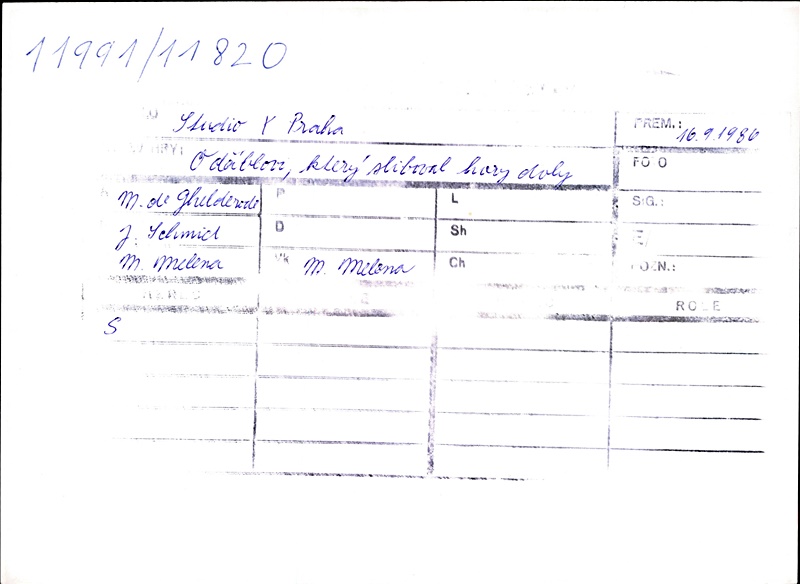 11991/11820
Studio Y Praha
PREM.: 16.9.1986
O ďáblovi, který sliboval hory doly
M. de Ghelderode
P
L
SIG.:
J. Schmid
D
Sh
M. Melena
M. Melena
Ch
POZN.:
ROLE
S